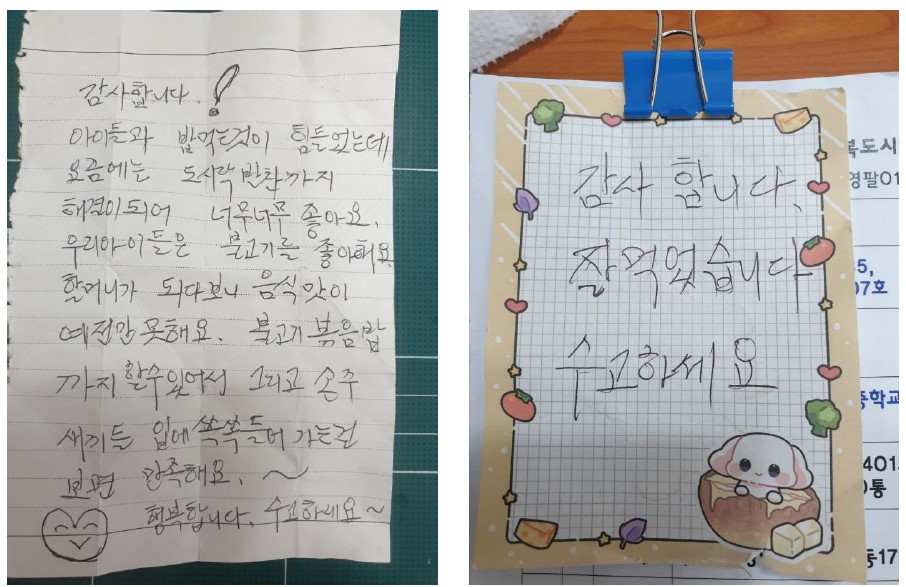 감사합니다.!
아이들과 밥먹는것이 힘들었는데
요즘에는 도시락 반찬까지
해결이되어 너무너무 좋아요.
우리아이들은 불고기를 좋아해요
할머니가 되다보니 음식맛이
예전만 못해요. 불고기 볶음밥
까지 할수있어서 그리고 손주
새끼들 입에 쏙쏙 들어 가는걸
보면 만족해요. ~
행복합니다. 수고하세요~
감사 합니다.
잘 먹었습니다
수고하세요
북도시
영팔01
07호
중학교
401
통17